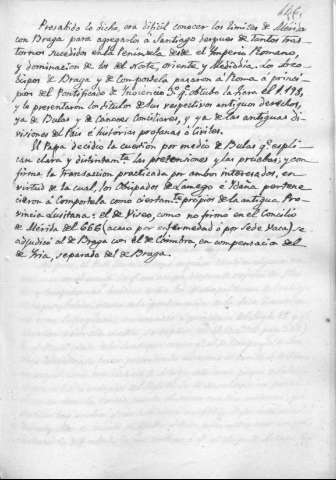 146.
Presabido lo dicho, era dificil conocer los limites de Mérida
con Braga para agregarlos á Santiago despues de tantos tras
tornos sucedidos en la Península desde el Imperio Romano,
y dominacion de los del Norte, oriente y Mediodia. Los Arzo
bispos de Braga y de Compostela pasaron á Roma á princi
pios del Pontificado de Inocencio 3.º q.e estubo la han el 1198,
y le presentaron los titulos de sus respectivos antiguos derechos,
ya de Bulas y de Cánones Conciliares, y ya de las antiguas di
visiones del Pais é historias profanas ó Civiles.
El Papa decidio la cuestion por medio de Bulas q.e espli
can clara y distintam.te las pretensiones y las pruebas; y con
firma la transacion practicada por ambos interesados, en
virtud de la cual, los Obispados de Lamego é Idaña pertene
cieron á Compostela como ciertam.te propios de la antigua Pro
vincia Lusitana: el de Viseo, como no firmó en el Concilio
de Mérida del 666 (acaso por enfermedad ó por Sede Vaca) se
adjudicó al de Braga con el de Coimbra, en compensacion del
de Iria, separado del de Braga.